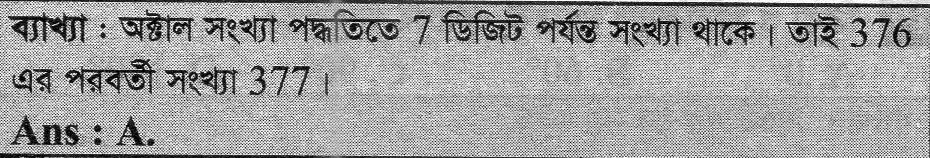 ব্যাখ্যা : অক্টাল সংখ্যা পদ্ধতিতে 7 ডিজিট পর্যন্ত সংখ্যা থাকে। তাই 376
এর পরবর্তী সংখ্যা 377।
Ans : A.